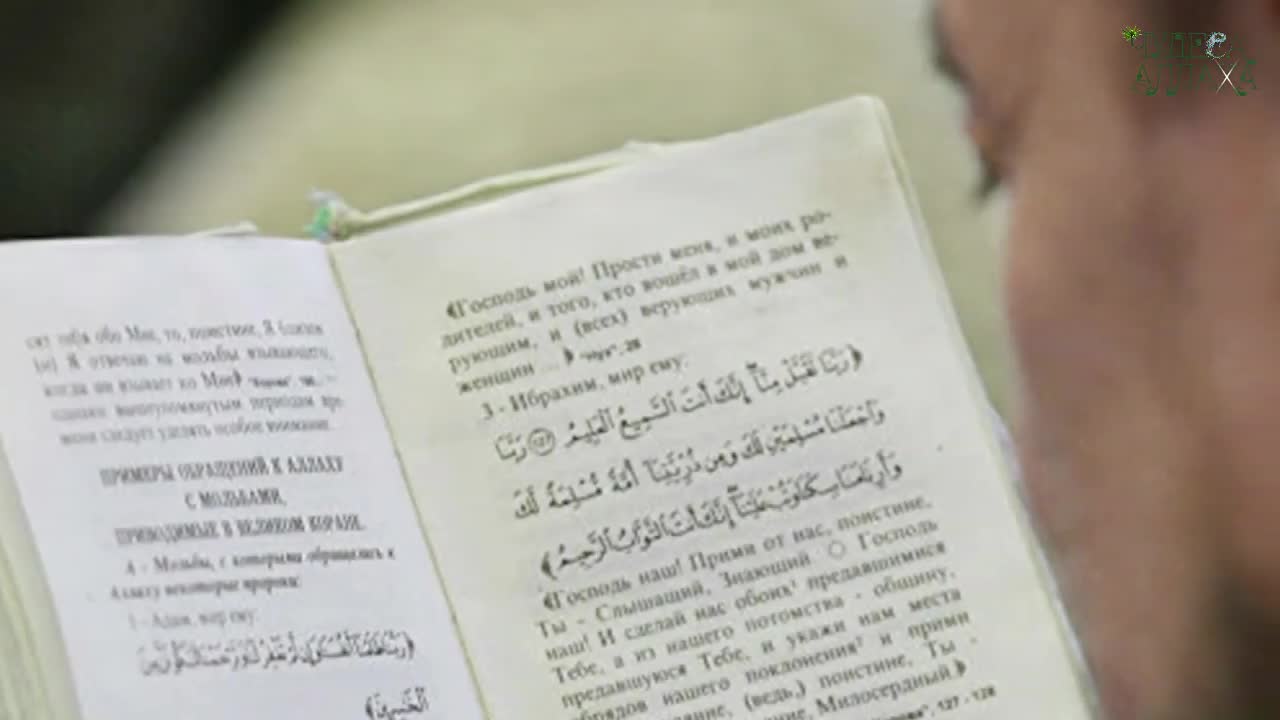 сят тебя обо Мне, то, поистине, Я (близок
(и) Я отвечаю на мольбы взывающего,
когда он взывает ко Мне﴾
однако вышеупомянутым периодам вре-
мени следует уделять особое внимание.
ПРИМЕРЫ ОБРАЩЕНИЙ К АЛЛАХУ
С МОЛЬБАМИ,
ПРИВОДИМЫЕ В ВЕЛИКОМ КОРАНЕ.
А - Мольбы, с которыми обращались к
Аллаху некоторые пророки:
1 - Адам, мир ему:
﴿رَبَّنَا ظَلَمْنَا أَنفُسَنَا
الْخَاسِرِينَ﴾
﴾Господь мой! Прости меня, и моих ро-
дителей, и того, кто вошёл в мой дом ве-
рующим, и (всех) верующих мужчин и
женщин ... ﴿ "Нух", 28
3 - Ибрахим, мир ему:
﴿رَبَّنَا تَقَبَّلْ مِنَّا إِنَّكَ أَنتَ السَّمِيعُ الْعَلِيمُ ١٢٧ رَبَّنَا
وَاجْعَلْنَا مُسْلِمَيْنِ لَكَ وَمِن ذُرِّيَّتِنَا أُمَّةً مُّسْلِمَةً لَّكَ
وَأَرِنَا مَنَاسِكَنَا وَتُبْ عَلَيْنَا إِنَّكَ أَنتَ التَّوَّابُ الرَّحِيمُ﴾
﴾Господь наш! Прими от нас, поистине,
Ты - Слышащий, Знающий ○ Господь
наш! И сделай нас обоих¹ предавшимися
Тебе, а из нашего потомства - общину,
предавшуюся Тебе, и укажи нам места
обрядов нашего поклонения² и прими
(ведь,) поистине, Ты
Милосердный.﴿
127 - 128
АЛЛАХА